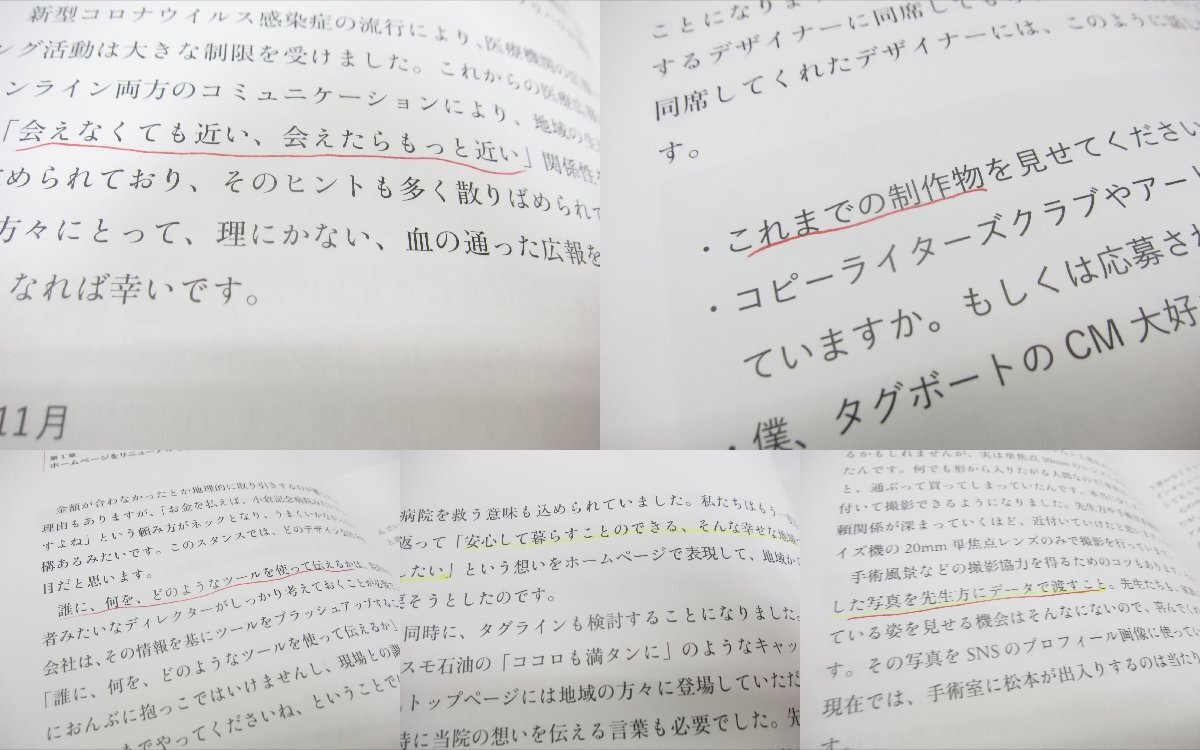 新型コロナウイルス感染症の流行により、医療機関の
ング活動は大きな制限を受けました。これからの医療広
ンライン両方のコミュニケーションにより、地域の
「会えなくても近い、会えたらもっと近い」関係性
められており、そのヒントも多く散りばめられて
方々にとって、理にかない、血の通った広報を
なれば幸いです。
11月
ことになりま
するデザイナーに同席しても
同席してくれたデザイナーには、このように
す。
・これまでの制作物を見せてください
・コピーライターズクラブやアー
ていますか。もしくは応募さ
・僕、タグボートのCM大好
第1章
ホームページをリニューアル
金額が合わなかったとか地理的に取り引きするのが
理由もありますが、「お金を払えば、小倉記念病院
すよね」という頼み方がネックとなり、うまくいかなか
構あるみたいです。このスタンスでは、どのデザイン会社
目だと思います。
誰に、何を、どのようなツールを使って伝えるかは、
者みたいなディレクターがしっかり考えておくことが必
会社は、その情報を基にツールをブラッシュアップする
「誰に、何を、どのようなツールを使って伝えるか」
におんぶに抱っこではいけませんし、現場との調
までやってくださいね、ということで
病院を救う意味も込められていました。私たちはもう一
返って「安心して暮らすことのできる、そんな幸せな地域
したい」という想いをホームページで表現して、地域か
そうとしたのです。
同時に、タグラインも検討することになりました。
スモ石油の「ココロも満タンに」のようなキャッ
トップページには地域の方々に登場していただ
時に当院の想いを伝える言葉も必要でした。先
るかもしれませんが、実は単焦点30mmのレン
たんです。何でも形から入りたがる人間なので
と、通ぶって買ってしまっていたんです。
付いて撮影できるようになりました。先生方や手術
頼関係が深まっていくほど、近付いていけたと思い
イズ機の20mm単焦点レンズのみで撮影を行ってい
手術風景などの撮影協力を得るためのコツもあり
した写真を先生方にデータで渡すこと。先生たちも、
ている姿を見せる機会はそんなにないので、喜んで
す。その写真をSNSのプロフィール画像に使って
現在では、手術室に松本が出入りするのは当たり
す。